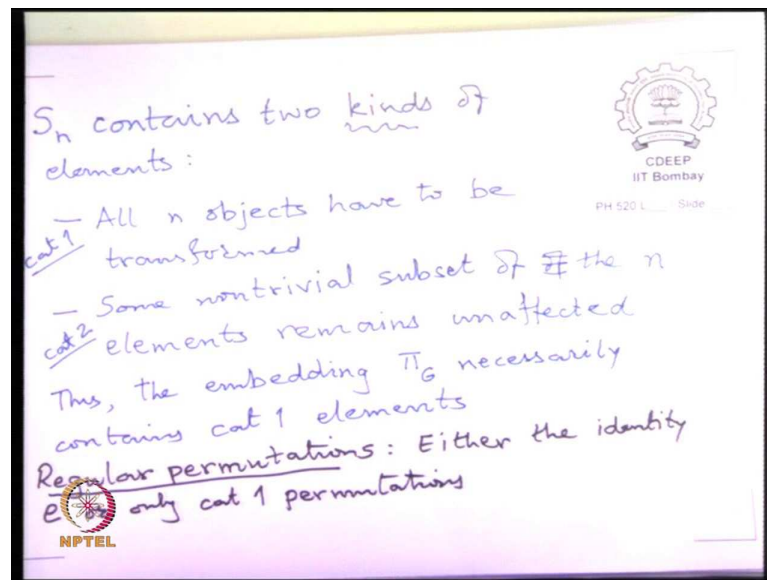 S_n contains two kinds of
elements :
CDEEP
IIT Bombay
PH 520 L Slide
cat 1 – All n objects have to be
transformed
cat 2 – Some nontrivial subset of the n
elements remains unaffected
Thus, the embedding Π_G necessarily
contains cat 1 elements
Regular permutations : Either the identity
e or only cat 1 permutations
NPTEL